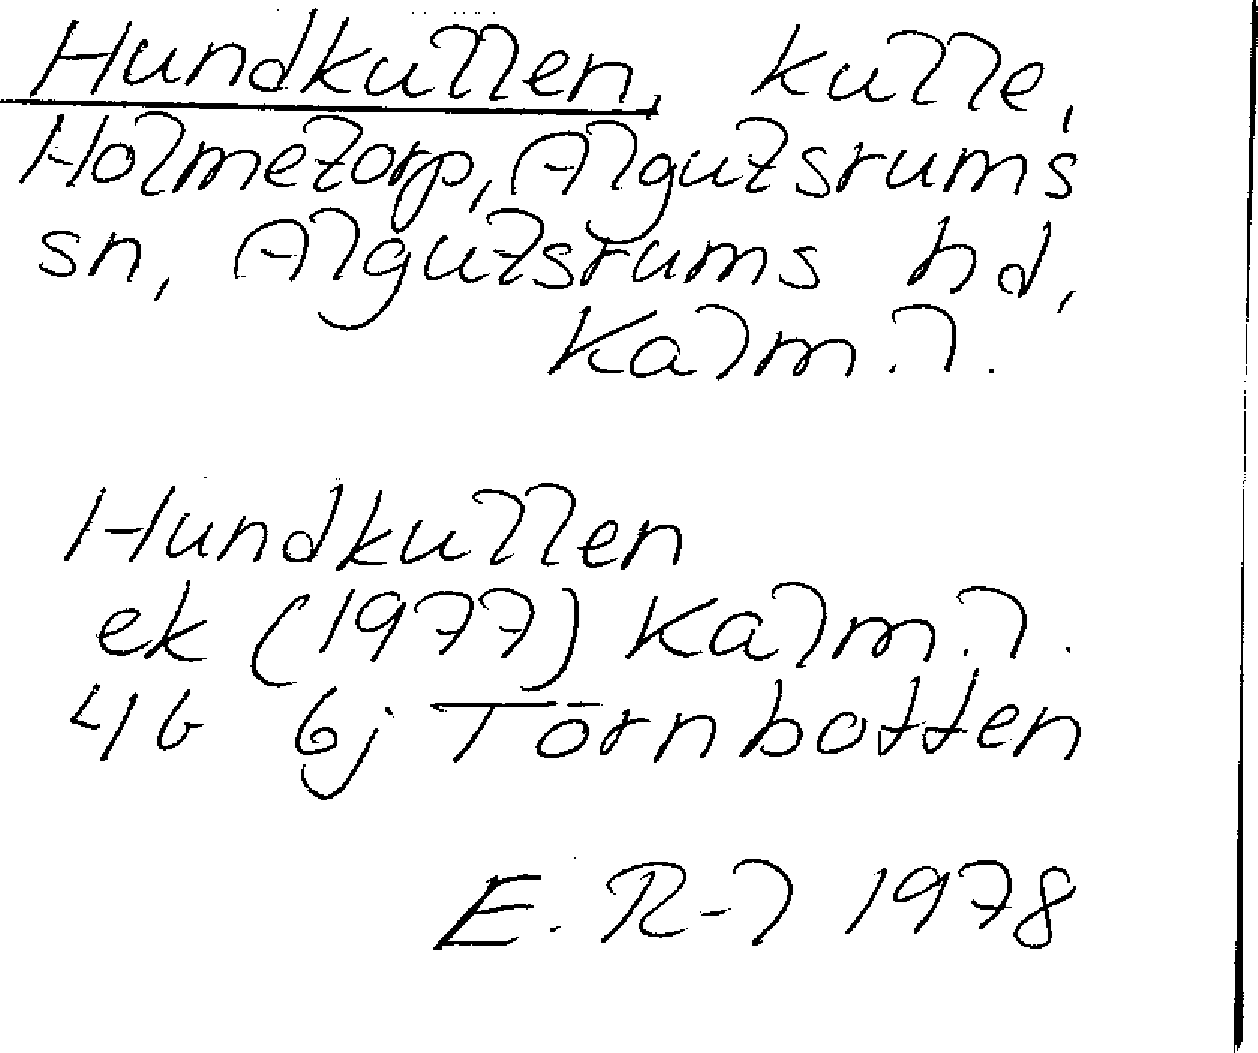 Hundkullen, kulle,
Holmetorp, Algutsrums
sn, Algutsrums hd,
Kalm. l.
Hundkullen
ek (1977) Kalm. l.
4G 6j Törnbotten
E. R-l 1978